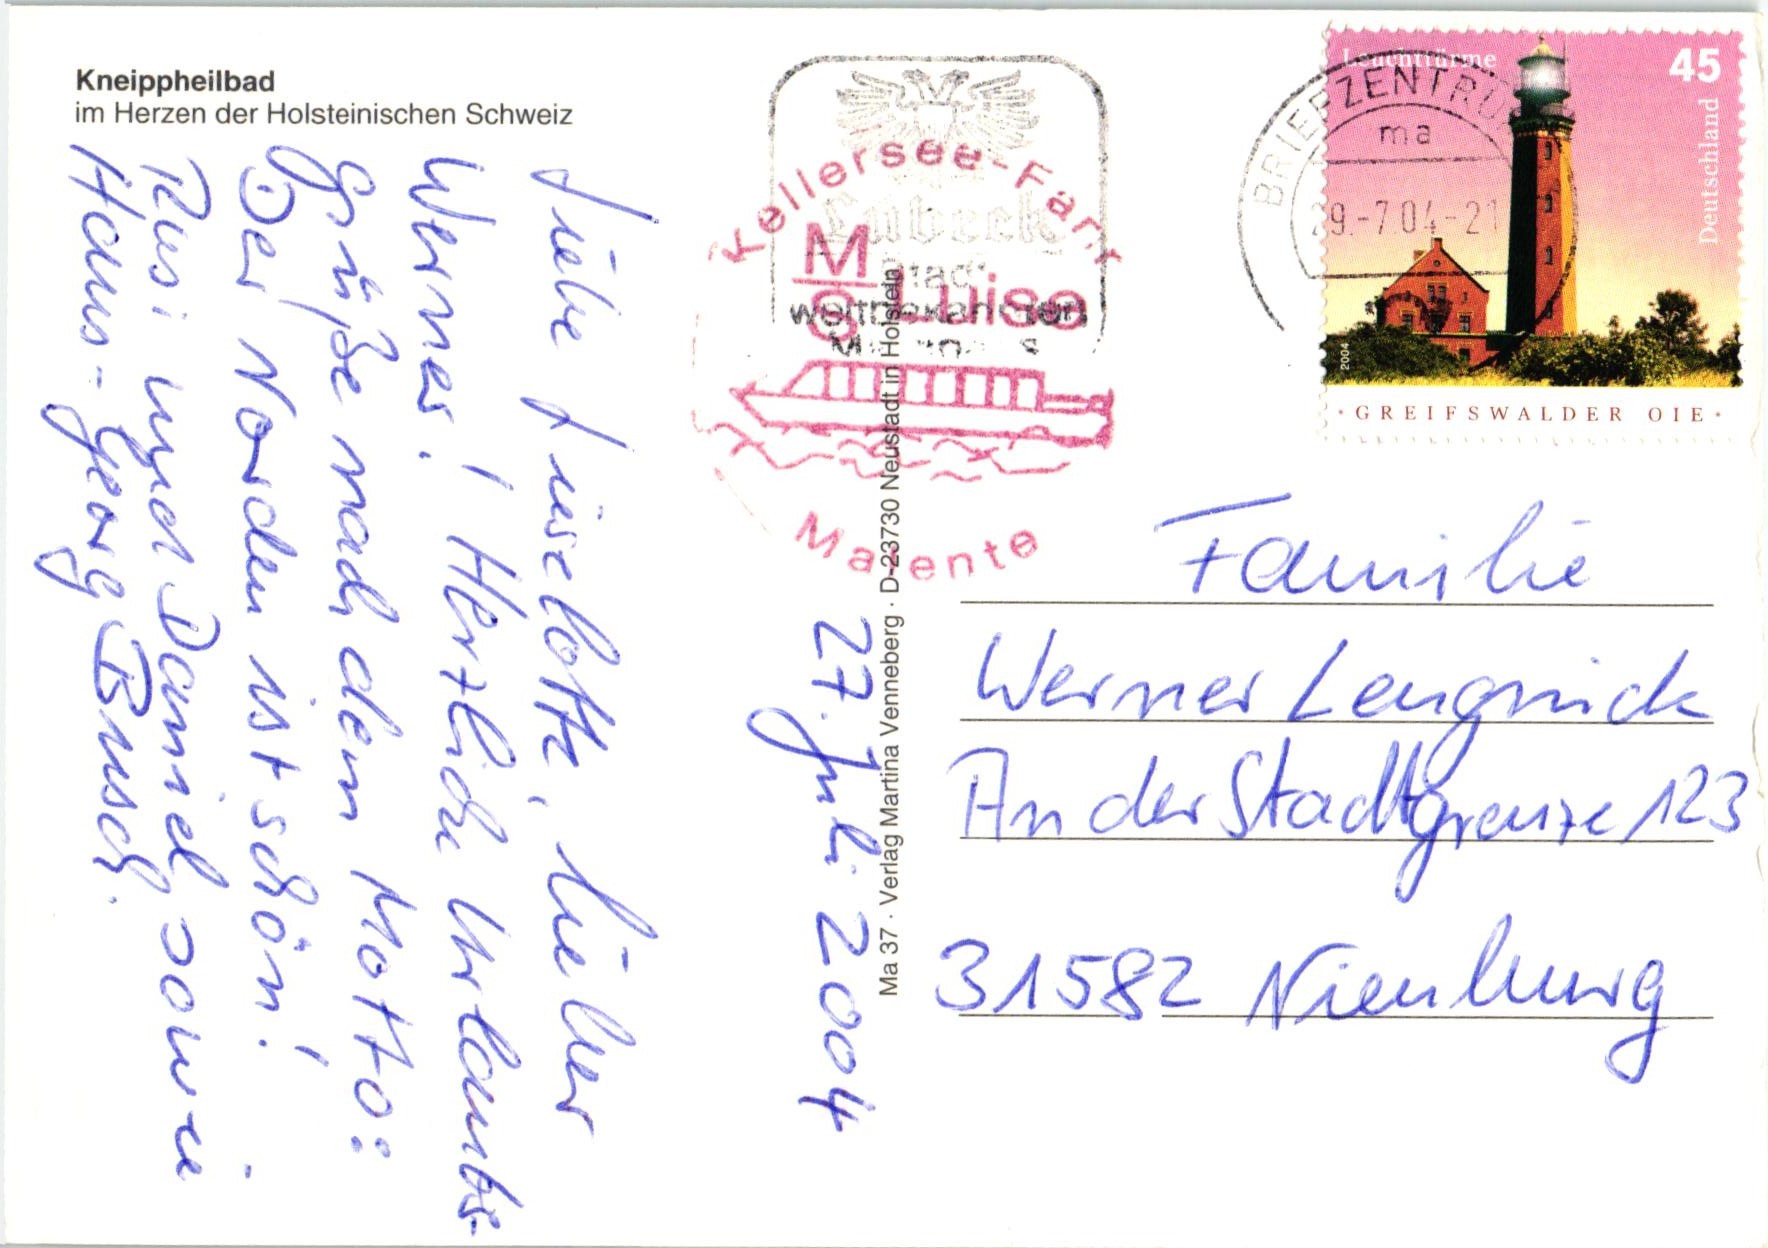 Kneippheilbad
im Herzen der Holsteinischen Schweiz
27. Juli 2004
Liebe Liselotte, lieber
Werner! Herzliche Urlaubs-
grüße nach dem Motto:
Der Norden ist schön!
Rosi und Daniel sowie
Hans-Georg Busch.
Kellersee-Fahrt
MS Luise
Malente
Lübeck
Stadt
weltbekannten
BRIEFZENTRUM
ma
29.-7.04-21
Leuchttürme
45
Deutschland
2004
GREIFSWALDER OIE
Ma 37 · Verlag Martina Venneberg · D-23730 Neustadt in Holstein
Familie
Werner Lengnick
An der Stadtgrenze 123
31582 Nienburg